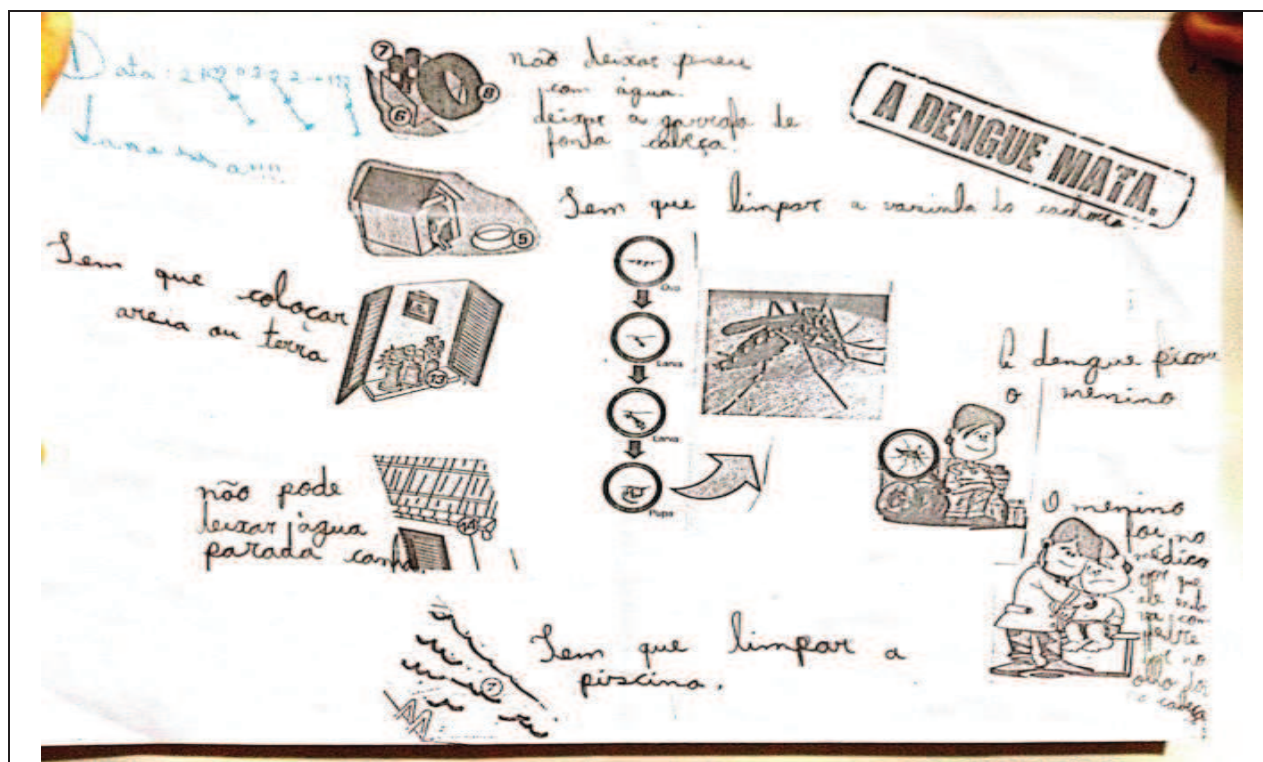 Data:
7
6
8
não deixar pneu
com água.
deixar a garrafa de
ponta cabeça.
A DENGUE MATA.
5
Tem que limpar a vasinha do cachorro.
Tem que colocar
areia ou terra
13
Ovo
Larva
Larva
Pupa
A dengue picou
o menino
não pode
deixar água
parada
14
O menino
foi no
médico
por que
ele
com
febre
no
olho
cabeça
Tem que limpar a
piscina.
7